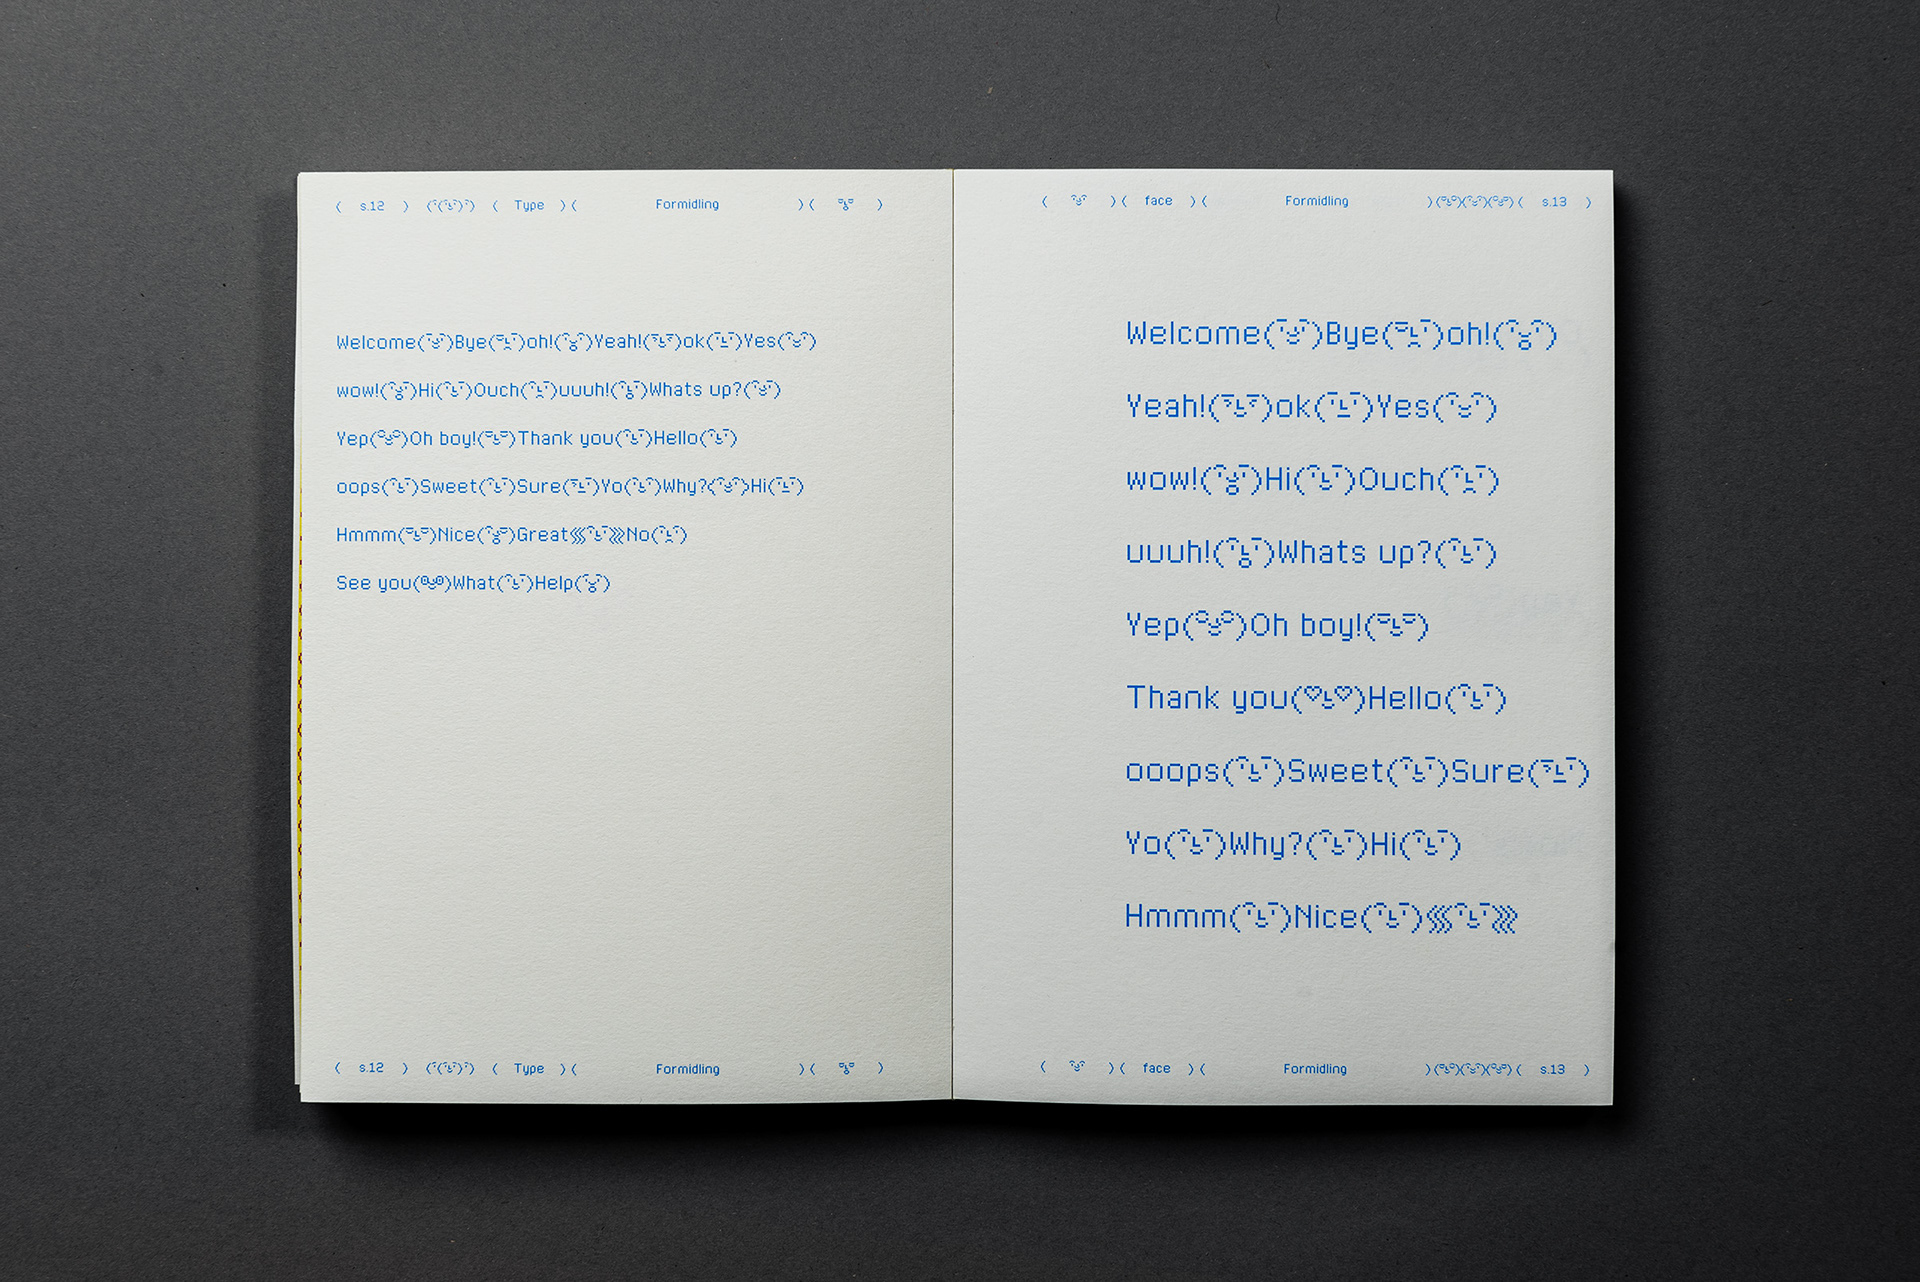 ( s.12 ) ( Type )( Formidling )( )
Welcome( )Bye( )oh!( )Yeah!( )ok( )Yes( )
wow!( )Hi( )Ouch( )uuuh!( )Whats up?( )
Yep( )Oh boy!( )Thank you( )Hello( )
oops( )Sweet( )Sure( )Yo( )Why?( )Hi( )
Hmmm( )Nice( )Great No( )
See you( )What( )Help( )
( s.12 ) ( Type )( Formidling )( )
( )( face )( Formidling )( )( )( )( s.13 )
Welcome( )Bye( )oh!( )
Yeah!( )ok( )Yes( )
wow!( )Hi( )Ouch( )
uuuh!( )Whats up?( )
Yep( )Oh boy!( )
Thank you(♡ ♡)Hello( )
ooops( )Sweet( )Sure( )
Yo( )Why?( )Hi( )
Hmmm( )Nice( )
( )( face )( Formidling )( )( )( )( s.13 )